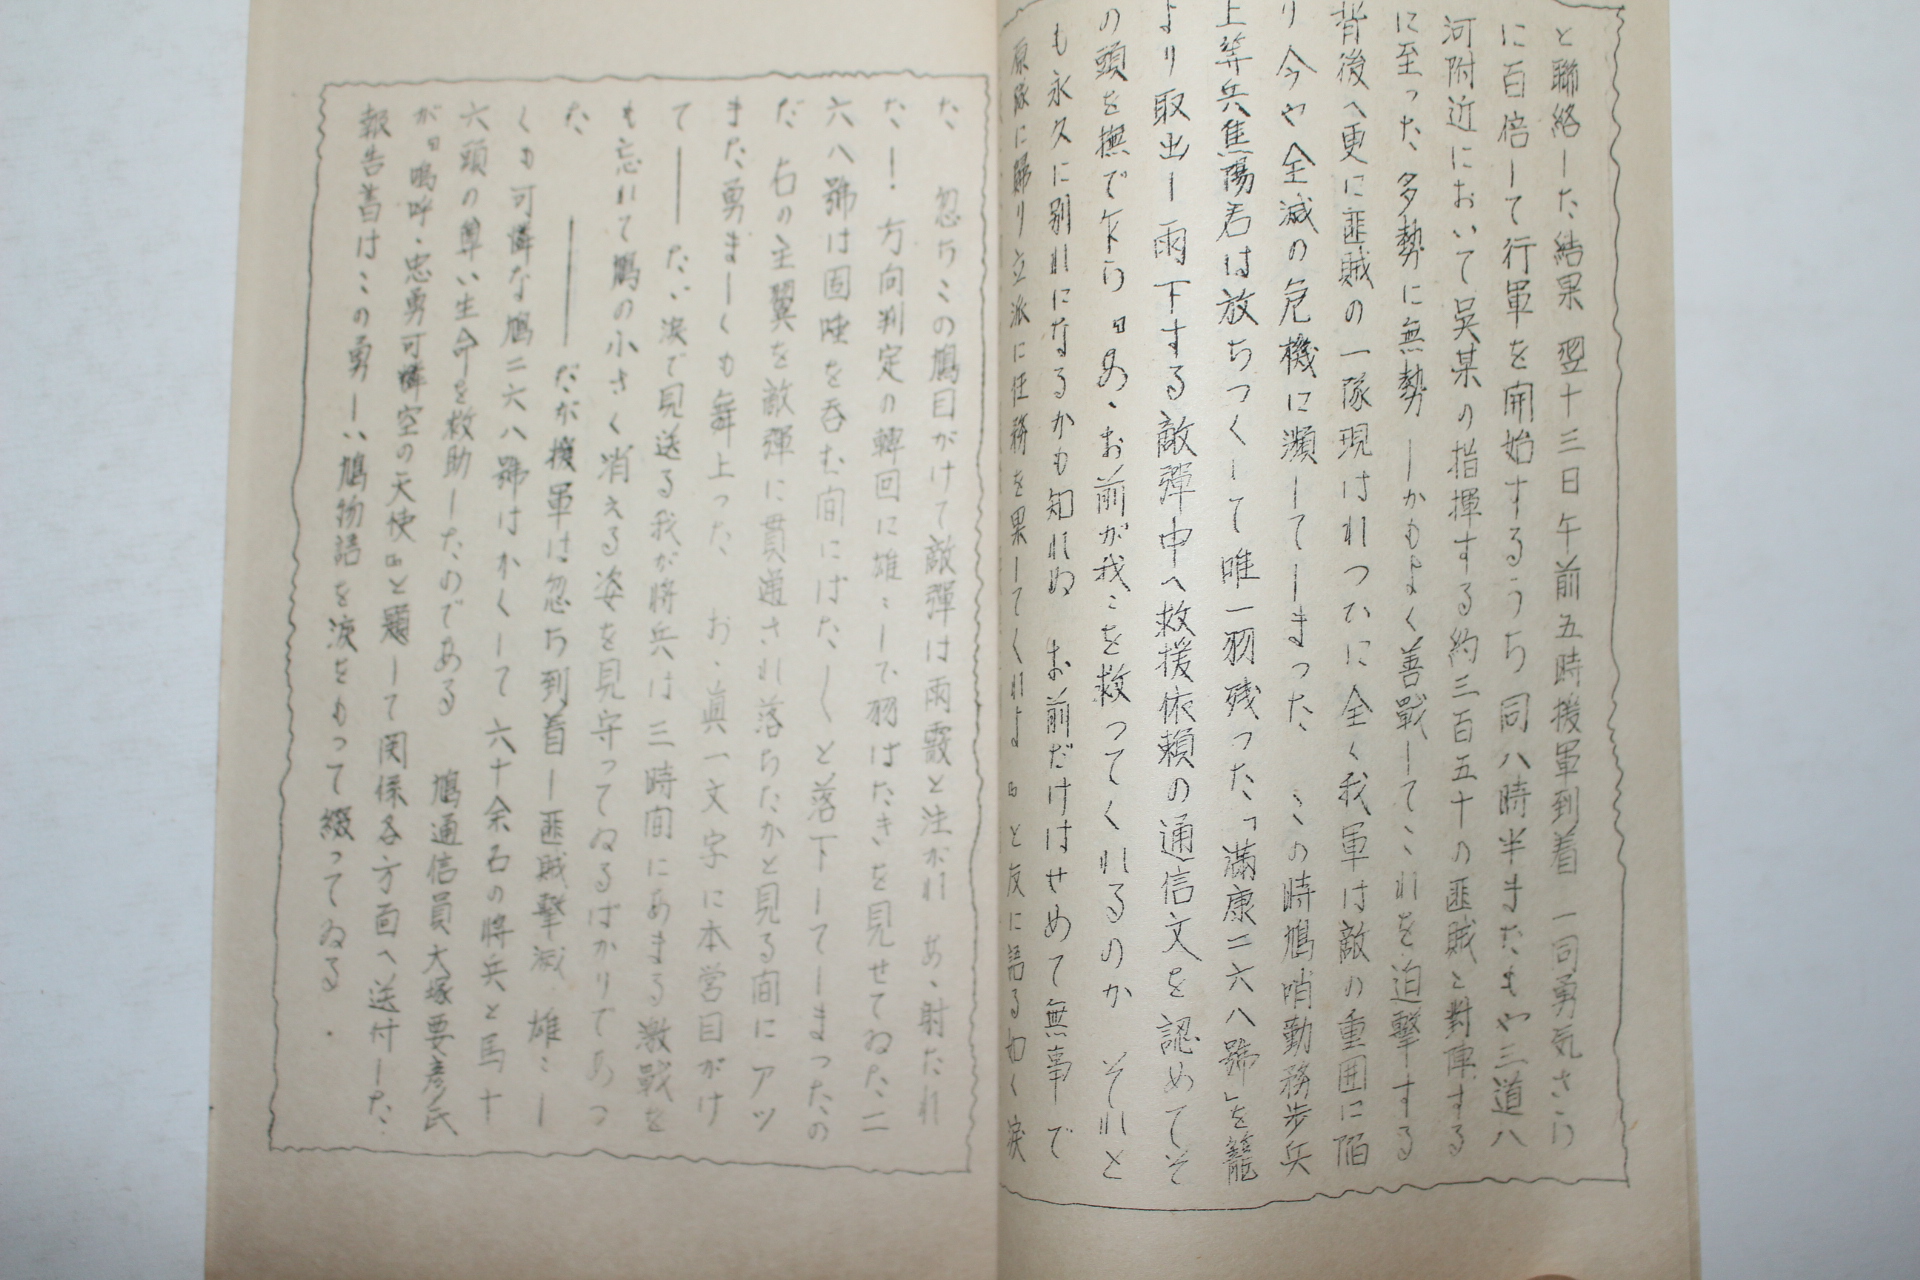 と聯絡した結果 翌十三日午前五時援軍到着 一同勇気さら
に百倍して行軍を開始するうち 同八時半またもや三道八
河附近において呉某の指揮する約三百五十の匪賊と對陣する
に至った 多勢に無勢 しかもよく善戰してこれを迫撃する
背後へ更に匪賊の一隊現はれつひに全く我軍は敵の重囲に陥
り今や全滅の危機に瀕してしまった、 この時鳩哨動務歩兵
上等兵焦陽君は放ちつくして唯一羽残った「満康二六八號」を籠
より取出し雨下する敵彈中へ救援依頼の通信文を認めてそ
の頭を撫で乍ら『あゝお前が我々を救ってくれるのか それと
も永久に別れになるかも知れぬ お前だけはせめて無事で
原隊に歸り立派に任務を果してくれよ』と友に語る如く涙
た 忽ちこの鳩目がけて敵彈は雨霰と注がれ あゝ射たれ
た！ 方向判定の轉回に雄々しで羽はたきを見せてゐた二
六八號は固唾を呑む間にはたしくと落下してしまったの
だ 右の主翼を敵彈に貫通され落ちたかと見る間にアッ
また勇ましくも舞上った、 おゝ眞一文字に本営目がけ
て── たゞ涙で見送る我が將兵は三時間にあまる激戰を
も忘れて鳩の小さく消える姿を見守ってゐるばかりであっ
た ── だが援軍は忽ち到着し匪賊撃滅 雄々し
くも可憐な鳩二六八號はかくして 六十余名の將兵と馬十
六頭の尊い生命を救助したのである 鳩通信員大塚要彦氏
が『嗚呼・忠勇可憐空の天使』と題して関係各方面へ送付した
報告書はこの勇しい鳩物語を涙をもって綴ってゐる .